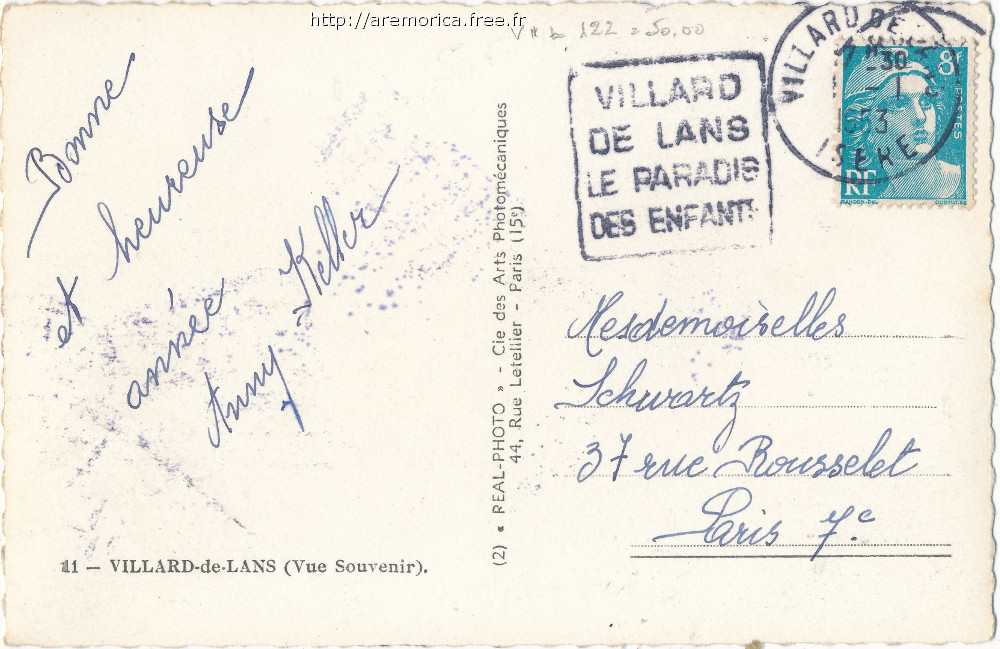 http://aremorica.free.fr
122 = 50.00
Bonne
et heureuse
année
Anny Keller
11 — VILLARD-de-LANS (Vue Souvenir).
(2) « REAL-PHOTO » - Cie des Arts Photomécaniques
44, Rue Letellier - Paris (15e)
VILLARD
DE LANS
LE PARADIS
DES ENFANTS
VILLARD DE
30
- 1
1953
ISERE
8f
POSTES
RF
GANDON
Mesdemoiselles
Schwartz
37 rue Rousselet
Paris 7e